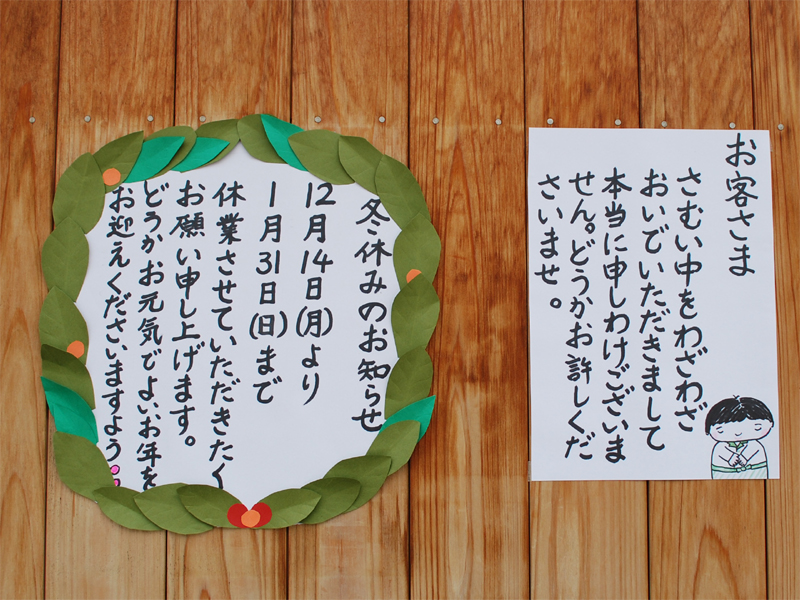 冬休みのお知らせ
12月14日(月)より
1月31日(日)まで
休業させていただきたく
お願い申し上げます。
どうかお元気でよいお年を
お迎えくださいますよう
お客さま
さむい中をわざわざ
おいでいただきまして
本当に申しわけございま
せん。どうかお許しくだ
さいませ。